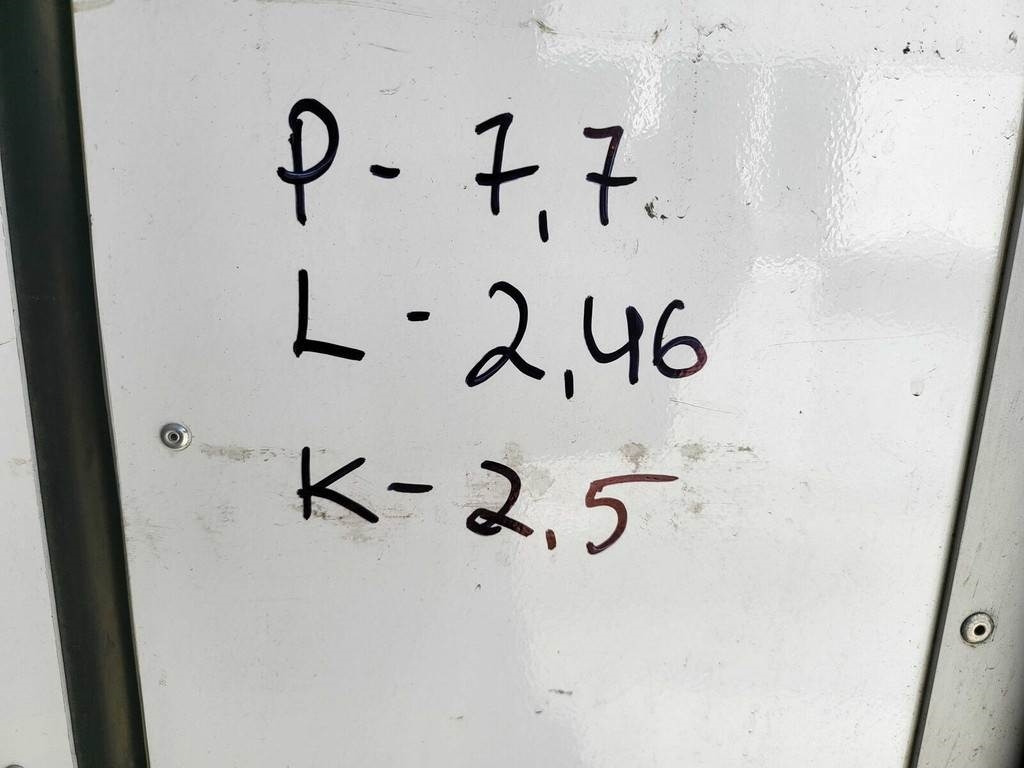 P - 7,7
L - 2,46
K - 2,5